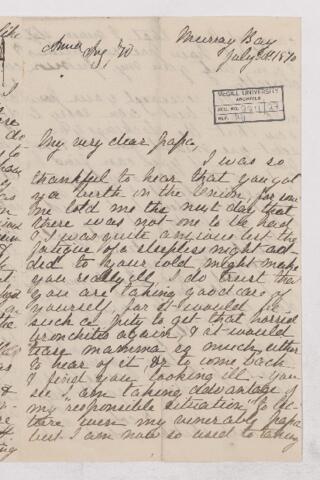 Anna Aug /70
Murray Bay
July 21st 1870
McGILL UNIVERSITY
ARCHIVES
ACC. NO.
REF.
My very dear papa,
I was so
thankful to hear that you got
a berth in the Union, for some
one told me the next day that
there was not one to be had
I was quite anxious lest the
fatigue of a sleepless night ad-
ded to your cold might make
you really ill. I do trust that
you are taking good care of
yourself, for it would be
such a pity to get that horrid
bronchitis again, & it would
tease mamma so much, either
to hear of it, or to come back
& find you looking ill. You
see I am taking advantage of
my responsible situation to lec-
ture even my venerable papa
but I am now so used to taking